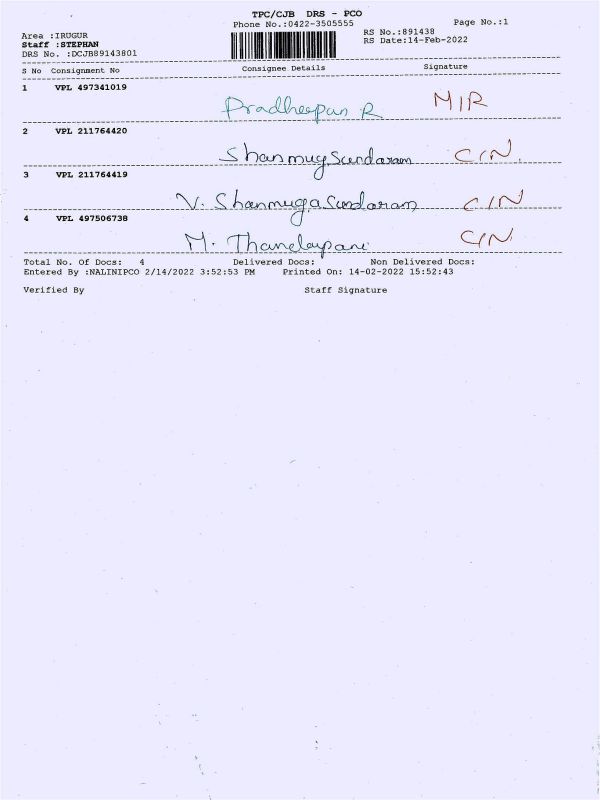 TPC/CJB DRS - PCO
Phone No.:0422-3505555 Page No.:1
Area :IRUGUR RS No.:891438
Staff :STEPHAN RS Date:14-Feb-2022
DRS No. :DCJB89143801
S No Consignment No Consignee Details Signature
1 VPL 497341019
Pradheepan R MIR
2 VPL 211764420
Shanmugsundaram C/N.
3 VPL 211764419
V. Shanmugasundaram C/N
4 VPL 497506738
M. C/N.
Total No. Of Docs: 4 Delivered Docs: Non Delivered Docs:
Entered By :NALINIPCO 2/14/2022 3:52:53 PM Printed On: 14-02-2022 15:52:43
Verified By Staff Signature